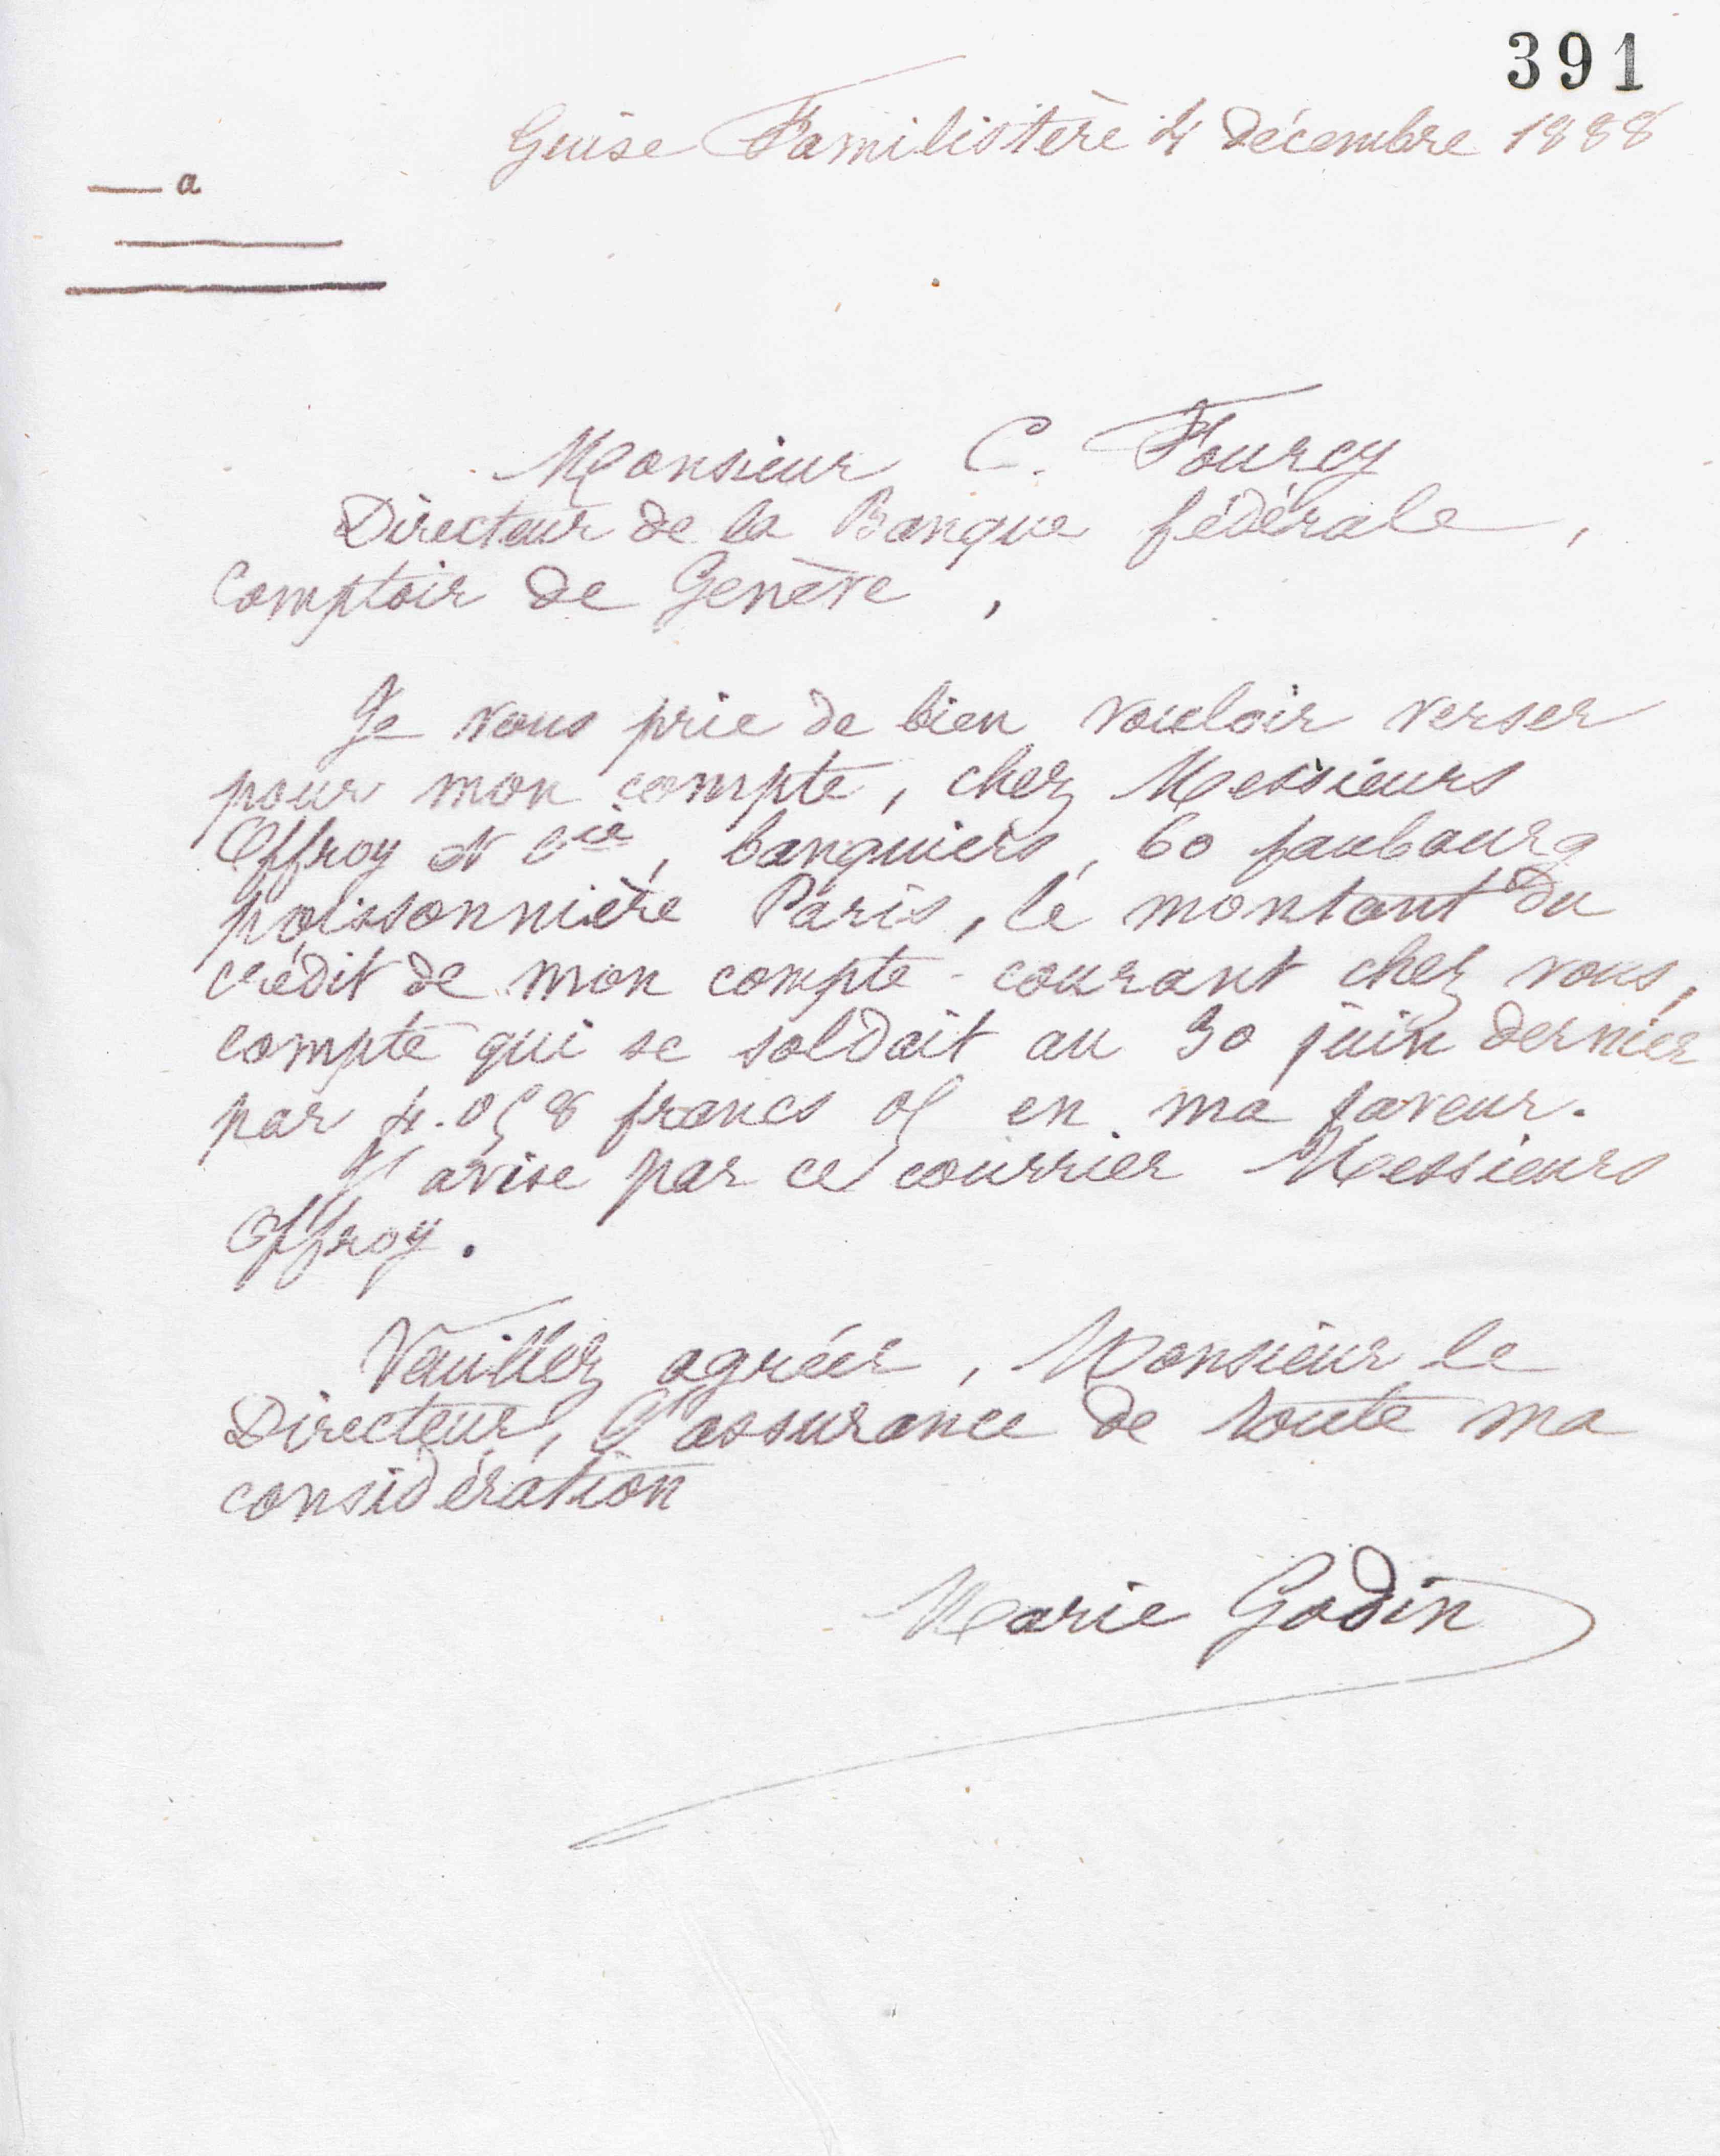 391
Guise Familistère 4 décembre 1888
a
Monsieur C. Fourcy
Directeur de la Banque fédérale,
Comptoir de Genève,
Je vous prie de bien vouloir verser
pour mon compte, chez Messieurs
Offroy et Cie, banquiers, 60 faubourg
poissonnière Paris, le montant du
crédit de mon compte-courant chez vous,
compte qui se soldait au 30 juin dernier
par 4.058 francs 05 en ma faveur.
J'avise par ce courrier Messieurs
Offroy.
Veuillez agréer, Monsieur le
Directeur, l'assurance de toute ma
considération
Marie Godin